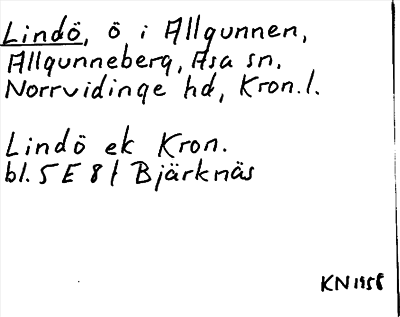 Lindö, ö i Allgunnen,
Allgunneberg, Asa sn,
Norrvidinge hd, Kron. l.
Lindö ek Kron.
bl. 5 E 8 f Bjärknäs
KN 1958